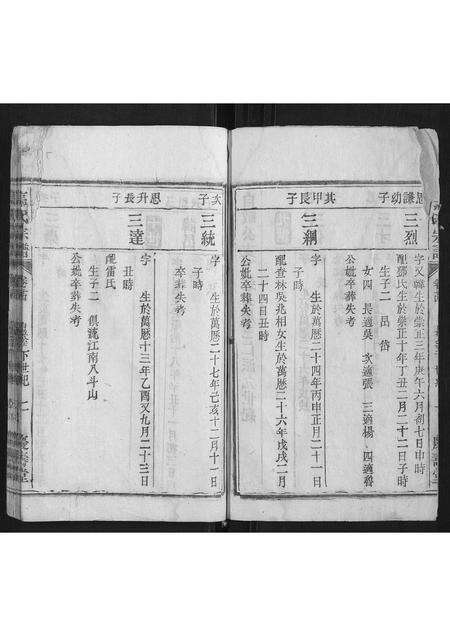 思謙幼子
三烈
字又韓生於崇正三年庚午六月初七日申時
配鄧氏生於崇正十年丁丑二月二十二日子時
生子二 昌 岱
女四 長適吳 次適張 三適楊 四適魯
公妣卒葬失考
其甲長子
三綱
字 生於萬曆二十四年丙申正月二十一日
子時
配查林吳兆相女生於萬曆二十六年戊戌二月
二十四日丑時
公妣卒葬失考
次子
三統
字 生於萬曆二十七年己亥十二月十一日
子時
卒葬失考
思升長子
三達
字 生於萬曆十三年乙酉又九月二十三日
丑時
配雷氏
生子二 俱瀧江南八斗山
公妣卒葬失考
宗譜
下世紀 二